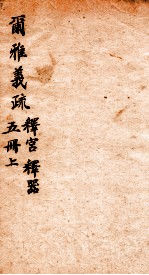 爾雅義疏
釋宮 釋器
五冊上